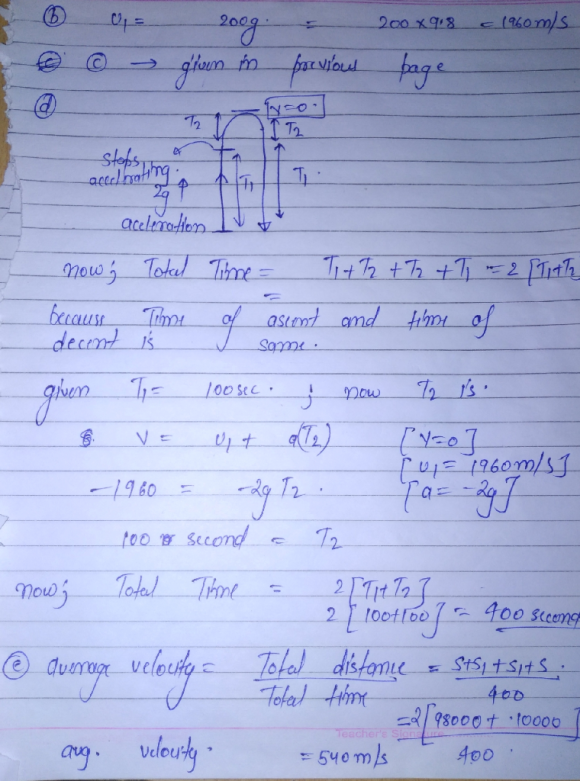 (b) v₁ = 200g. = 200 × 9.8 = 1960 m/s
(c) → given in previous page
(d)
v=0.
T₂
T₂
stops
accelerating.
2g
T₁
T₁.
acceleration
now; Total Time = T₁+T₂+T₂+T₁ = 2[T₁+T₂
=
because Time of ascent and time of
decent is same.
given T₁= 100 sec. ; now T₂ is.
v = u₁ + a(T₂) [v=0]
[u₁= 1960 m/s]
-1960 = -2g T₂. [a= -2g]
100 second = T₂
now; Total Time = 2[T₁+T₂]
2[100+100] = 400 second
(e) average velocity = Total distance / Total time = S+S₁+S₁+S. / 400
= 2[98000+.10000] / 400.
Teacher's Signature
avg. velocity. = 540 m/s